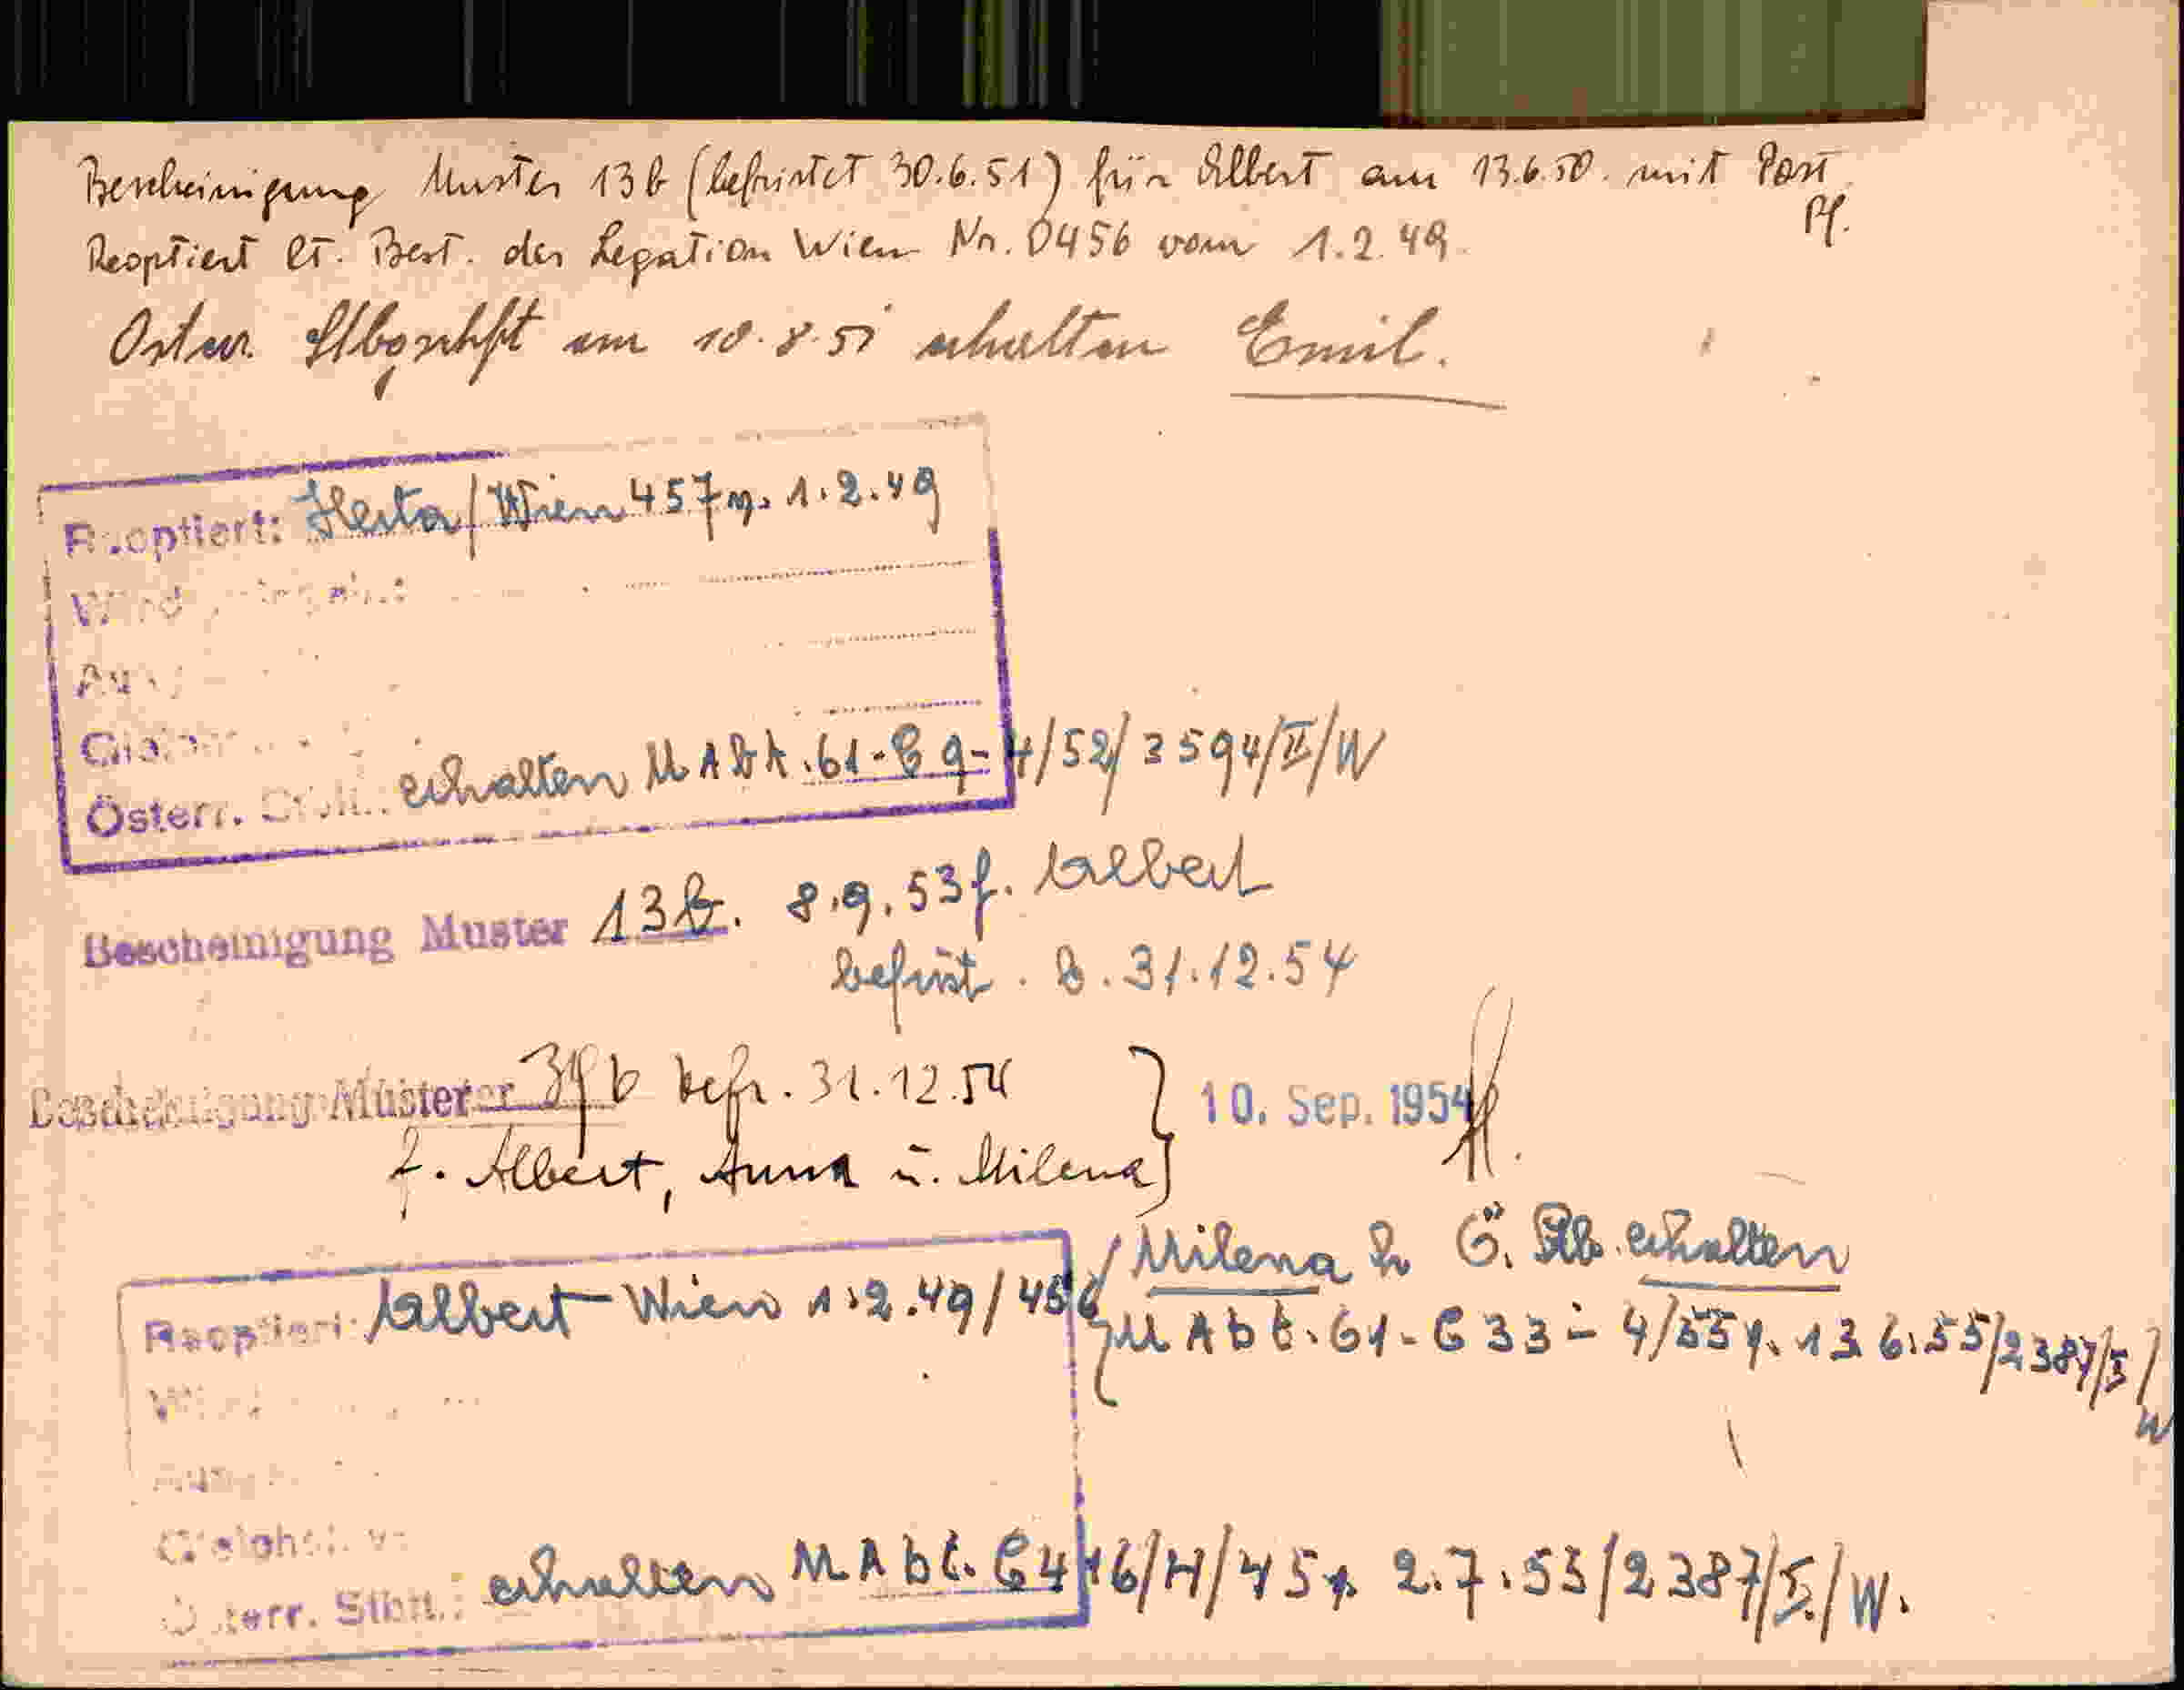 Bescheinigung Muster 13b (befristet 30.6.51) für Albert am 13.6.50. mit Post
Pf.
Reoptiert lt. Best. der Legation Wien Nr. 0456 vom 1.2.49.
Österr. Stbgschft am 10.8.51 erhalten Emil.
Reoptiert: Herta/Wien 457 v. 1.2.49
Österr. erhalten M Abt. 61-E 9-H/52/3594/II/W
Bescheinigung Muster 13b. 8.9.53 f. Albert
befrist. b. 31.12.54
Bescheinigung Muster befr. 31.12.54
f. Albert, Anna u. Milena
10. Sep. 1954
Reoptiert: Albert Wien 1.2.49/456
Milena Ö. Stb. erhalten
M Abt. 61-E 33-4/55 v. 13.6.55/2387/I/W
Gleichst.
Österr. Stbft.: erhalten M Abt. 2.7.53/2387/I/W.